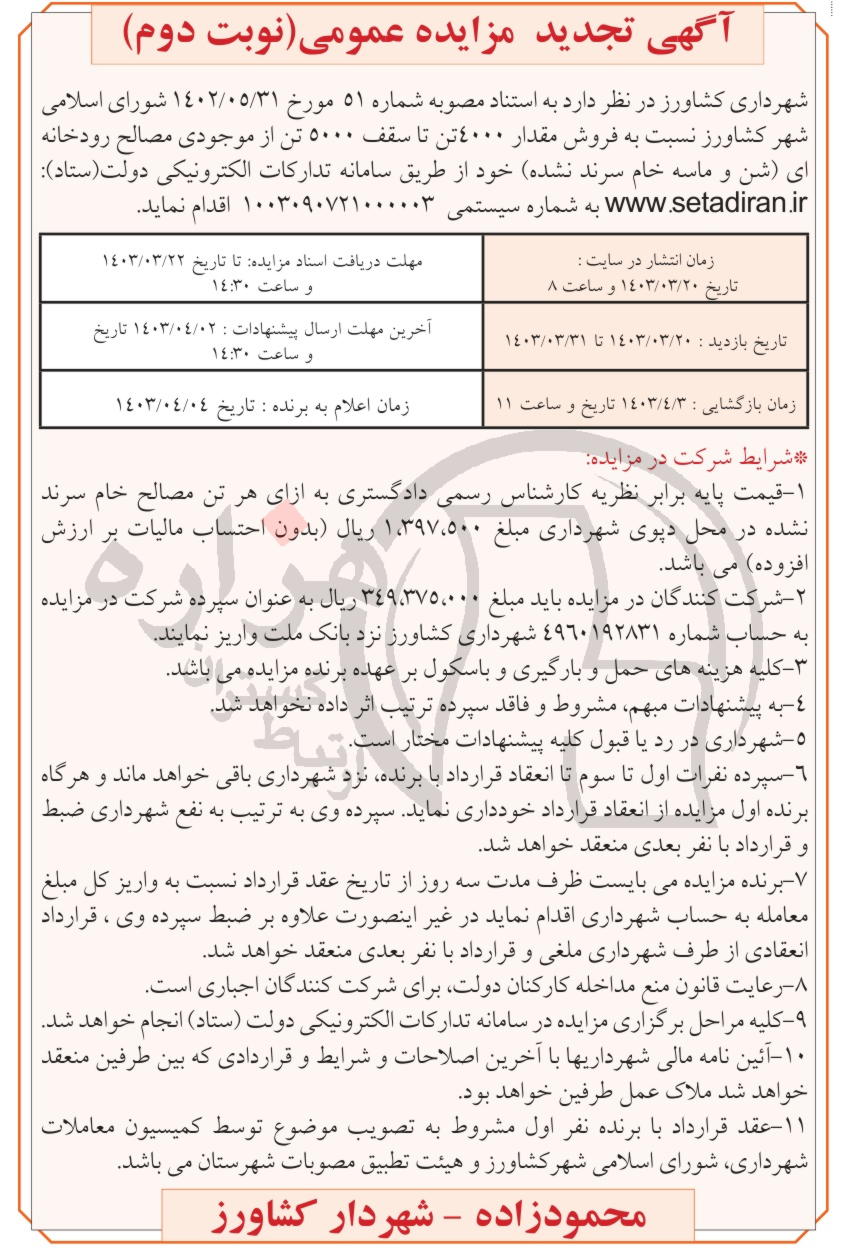 آگهی تجدید مزایده عمومی(نوبت دوم)
شهرداری کشاورز در نظر دارد به استناد مصوبه شماره ۵۱ مورخ ۱۴۰۲/۰۵/۳۱ شورای اسلامی
شهر کشاورز نسبت به فروش مقدار ۴۰۰۰تن تا سقف ۵۰۰۰ تن از موجودی مصالح رودخانه
ای (شن و ماسه خام سرند نشده) خود از طریق سامانه تدارکات الکترونیکی دولت(ستاد):
www.setadiran.ir به شماره سیستمی ۱۰۰۳۰۹۰۷۲۱۰۰۰۰۰۳ اقدام نماید.
زمان انتشار در سایت :
تاریخ ۱۴۰۳/۰۳/۲۰ و ساعت ۸
مهلت دریافت اسناد مزایده: تا تاریخ ۱۴۰۳/۰۳/۲۲
و ساعت ۱۴:۳۰
تاریخ بازدید : ۱۴۰۳/۰۳/۲۰ تا ۱۴۰۳/۰۳/۳۱
آخرین مهلت ارسال پیشنهادات : ۱۴۰۳/۰۴/۰۲ تاریخ
و ساعت ۱۴:۳۰
زمان بازگشایی : ۱۴۰۳/۴/۳ تاریخ و ساعت ۱۱
زمان اعلام به برنده : تاریخ ۱۴۰۳/۰۴/۰۴
*شرایط شرکت در مزایده:
۱-قیمت پایه برابر نظریه کارشناس رسمی دادگستری به ازای هر تن مصالح خام سرند
نشده در محل دپوی شهرداری مبلغ ۱،۳۹۷،۵۰۰ ریال (بدون احتساب مالیات بر ارزش
افزوده) می باشد.
۲-شرکت کنندگان در مزایده باید مبلغ ۳۴۹،۳۷۵،۰۰۰ ریال به عنوان سپرده شرکت در مزایده
به حساب شماره ۴۹۶۰۱۹۲۸۳۱ شهرداری کشاورز نزد بانک ملت واریز نمایند.
۳-کلیه هزینه های حمل و بارگیری و باسکول بر عهده برنده مزایده می باشد.
۴-به پیشنهادات مبهم، مشروط و فاقد سپرده ترتیب اثر داده نخواهد شد.
۵-شهرداری در رد یا قبول کلیه پیشنهادات مختار است.
۶-سپرده نفرات اول تا سوم تا انعقاد قرارداد با برنده، نزد شهرداری باقی خواهد ماند و هرگاه
برنده اول مزایده از انعقاد قرارداد خودداری نماید. سپرده وی به ترتیب به نفع شهرداری ضبط
و قرارداد با نفر بعدی منعقد خواهد شد.
۷-برنده مزایده می بایست ظرف مدت سه روز از تاریخ عقد قرارداد نسبت به واریز کل مبلغ
معامله به حساب شهرداری اقدام نماید در غیر اینصورت علاوه بر ضبط سپرده وی ، قرارداد
انعقادی از طرف شهرداری ملغی و قرارداد با نفر بعدی منعقد خواهد شد.
۸-رعایت قانون منع مداخله کارکنان دولت، برای شرکت کنندگان اجباری است.
۹-کلیه مراحل برگزاری مزایده در سامانه تدارکات الکترونیکی دولت (ستاد) انجام خواهد شد.
۱۰-آئین نامه مالی شهرداریها با آخرین اصلاحات و شرایط و قراردادی که بین طرفین منعقد
خواهد شد ملاک عمل طرفین خواهد بود.
۱۱-عقد قرارداد با برنده نفر اول مشروط به تصویب موضوع توسط کمیسیون معاملات
شهرداری، شورای اسلامی شهرکشاورز و هیئت تطبیق مصوبات شهرستان می باشد.
محمودزاده - شهردار کشاورز
هزاره
گستران
ارتباط